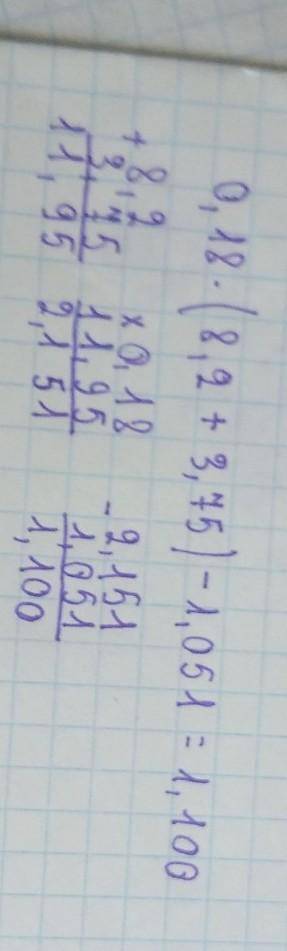 0,18 · (8,2 + 3,75) - 1,051 = 1,100
+ 8,2
3,75
11,95
× 0,18
11,95
2,151
- 2,151
1,051
1,100